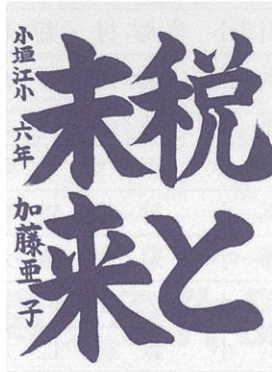 税と
未来
小垣江小 六年
加藤亜子